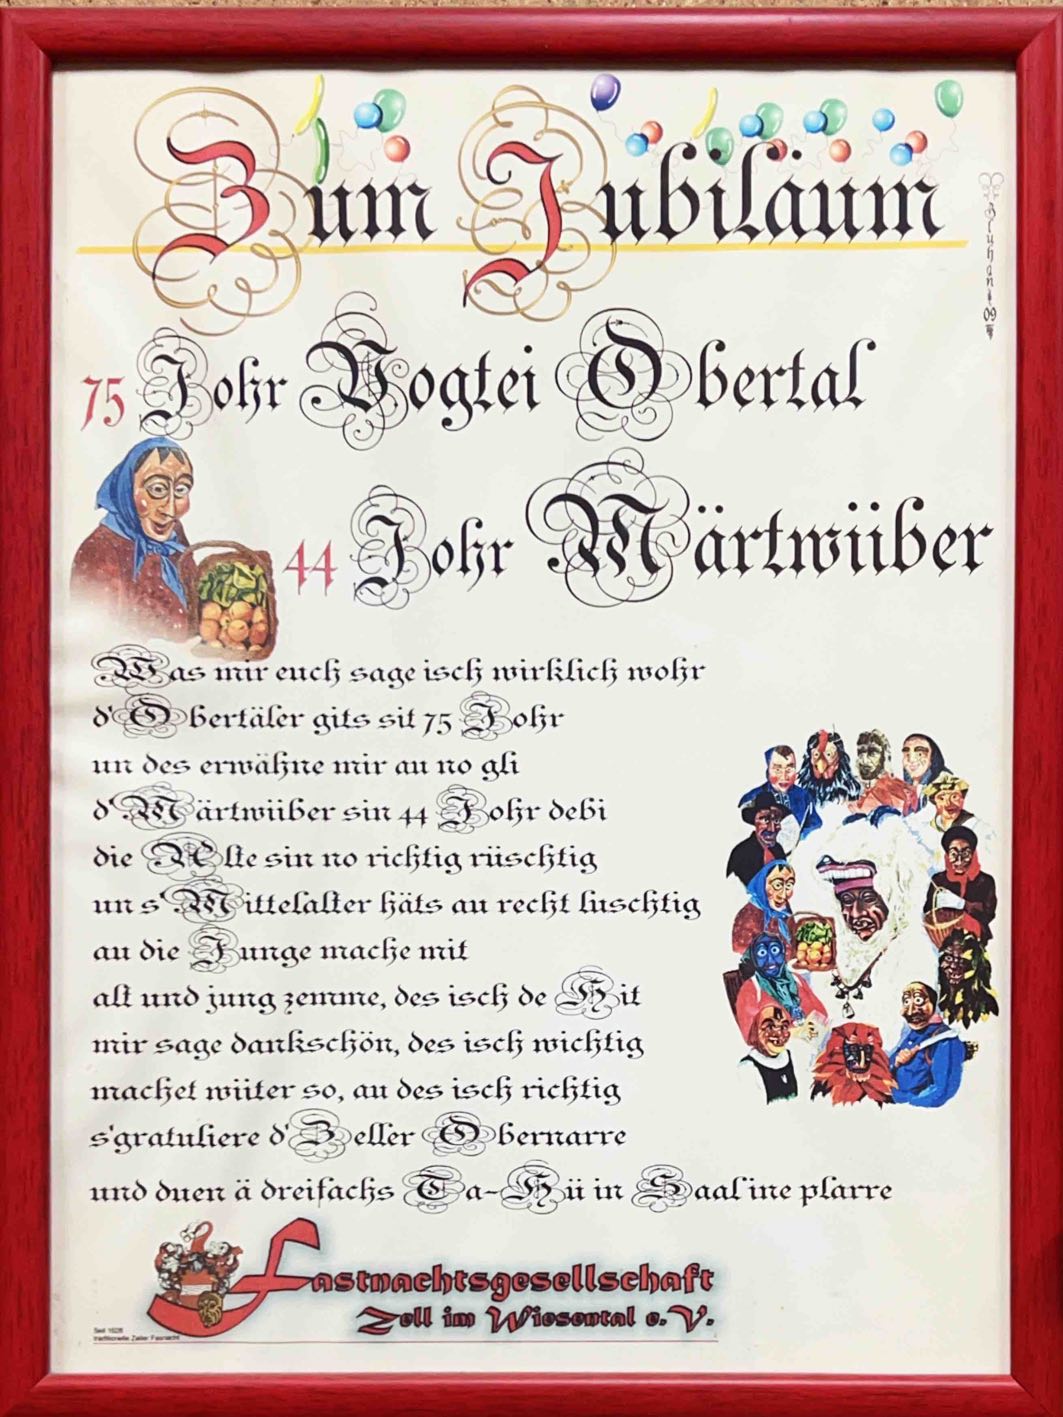 Zum Jubiläum
Bruhani 09
75 Johr Vogtei Obertal
44 Johr Märtwiiber
Was mir euch sage isch wirklich wohr
d'Obertäler gits sit 75 Johr
un des erwähne mir au no gli
d'Märtwiiber sin 44 Johr debi
die Alte sin no richtig rüschtig
un s'Mittelalter häts au recht luschtig
au die Junge mache mit
alt und jung zemme, des isch de Hit
mir sage dankschön, des isch wichtig
machet wiiter so, au des isch richtig
s'gratuliere d'Zeller Obernarre
und duen ä dreifachs Ta-Hü in Saal ine plarre
Fastnachtsgesellschaft
Zell im Wiesental e.V.
traditionelle Zeller Fasnacht